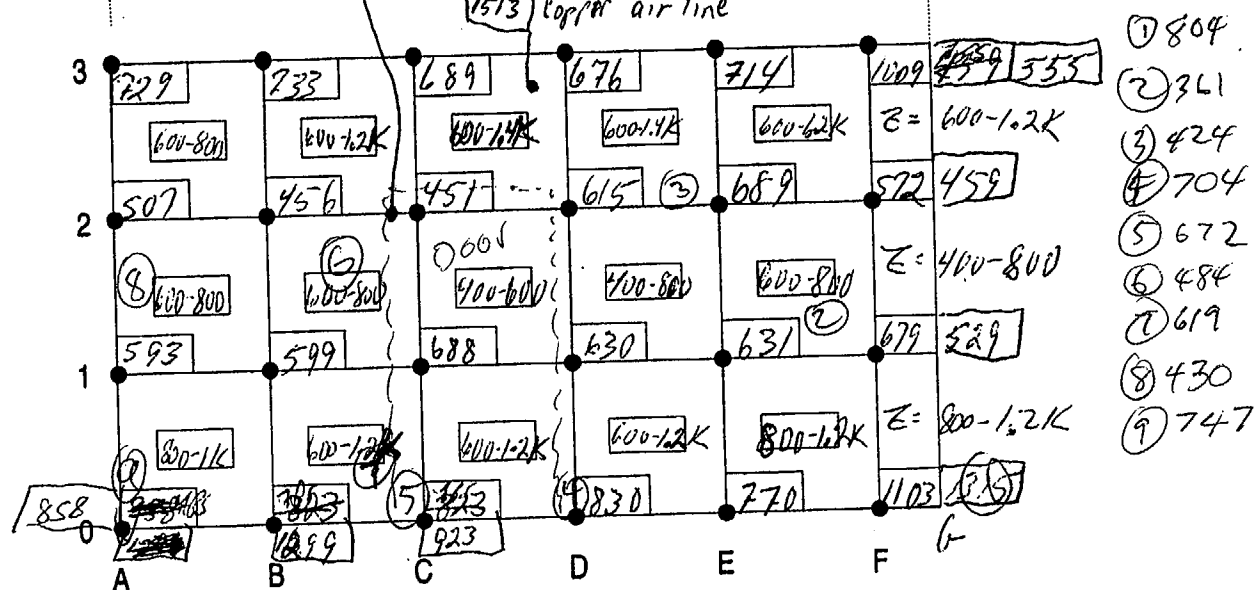 1513 Copper air line
3
729 733 689 676 714 1009 555
600-800 600-1.2K 600-1.4K 600-1.4K 600-1.2K Z= 600-1.2K
507 456 451 615 ③ 689 572 459
2
⑧ 600-800 ⑥ 600-800 DOOR 400-600 400-800 600-800 ② Z= 400-800
593 599 688 630 631 679 529
1
800-1K 600-1.2K 600-1.2K 600-1.2K 800-1.2K Z= 800-1.2K
858 ⑤ ④ 830 770 1103
0
1299 923
A B C D E F G
① 804
② 361
③ 424
④ 704
⑤ 672
⑥ 484
⑦ 619
⑧ 430
⑨ 747